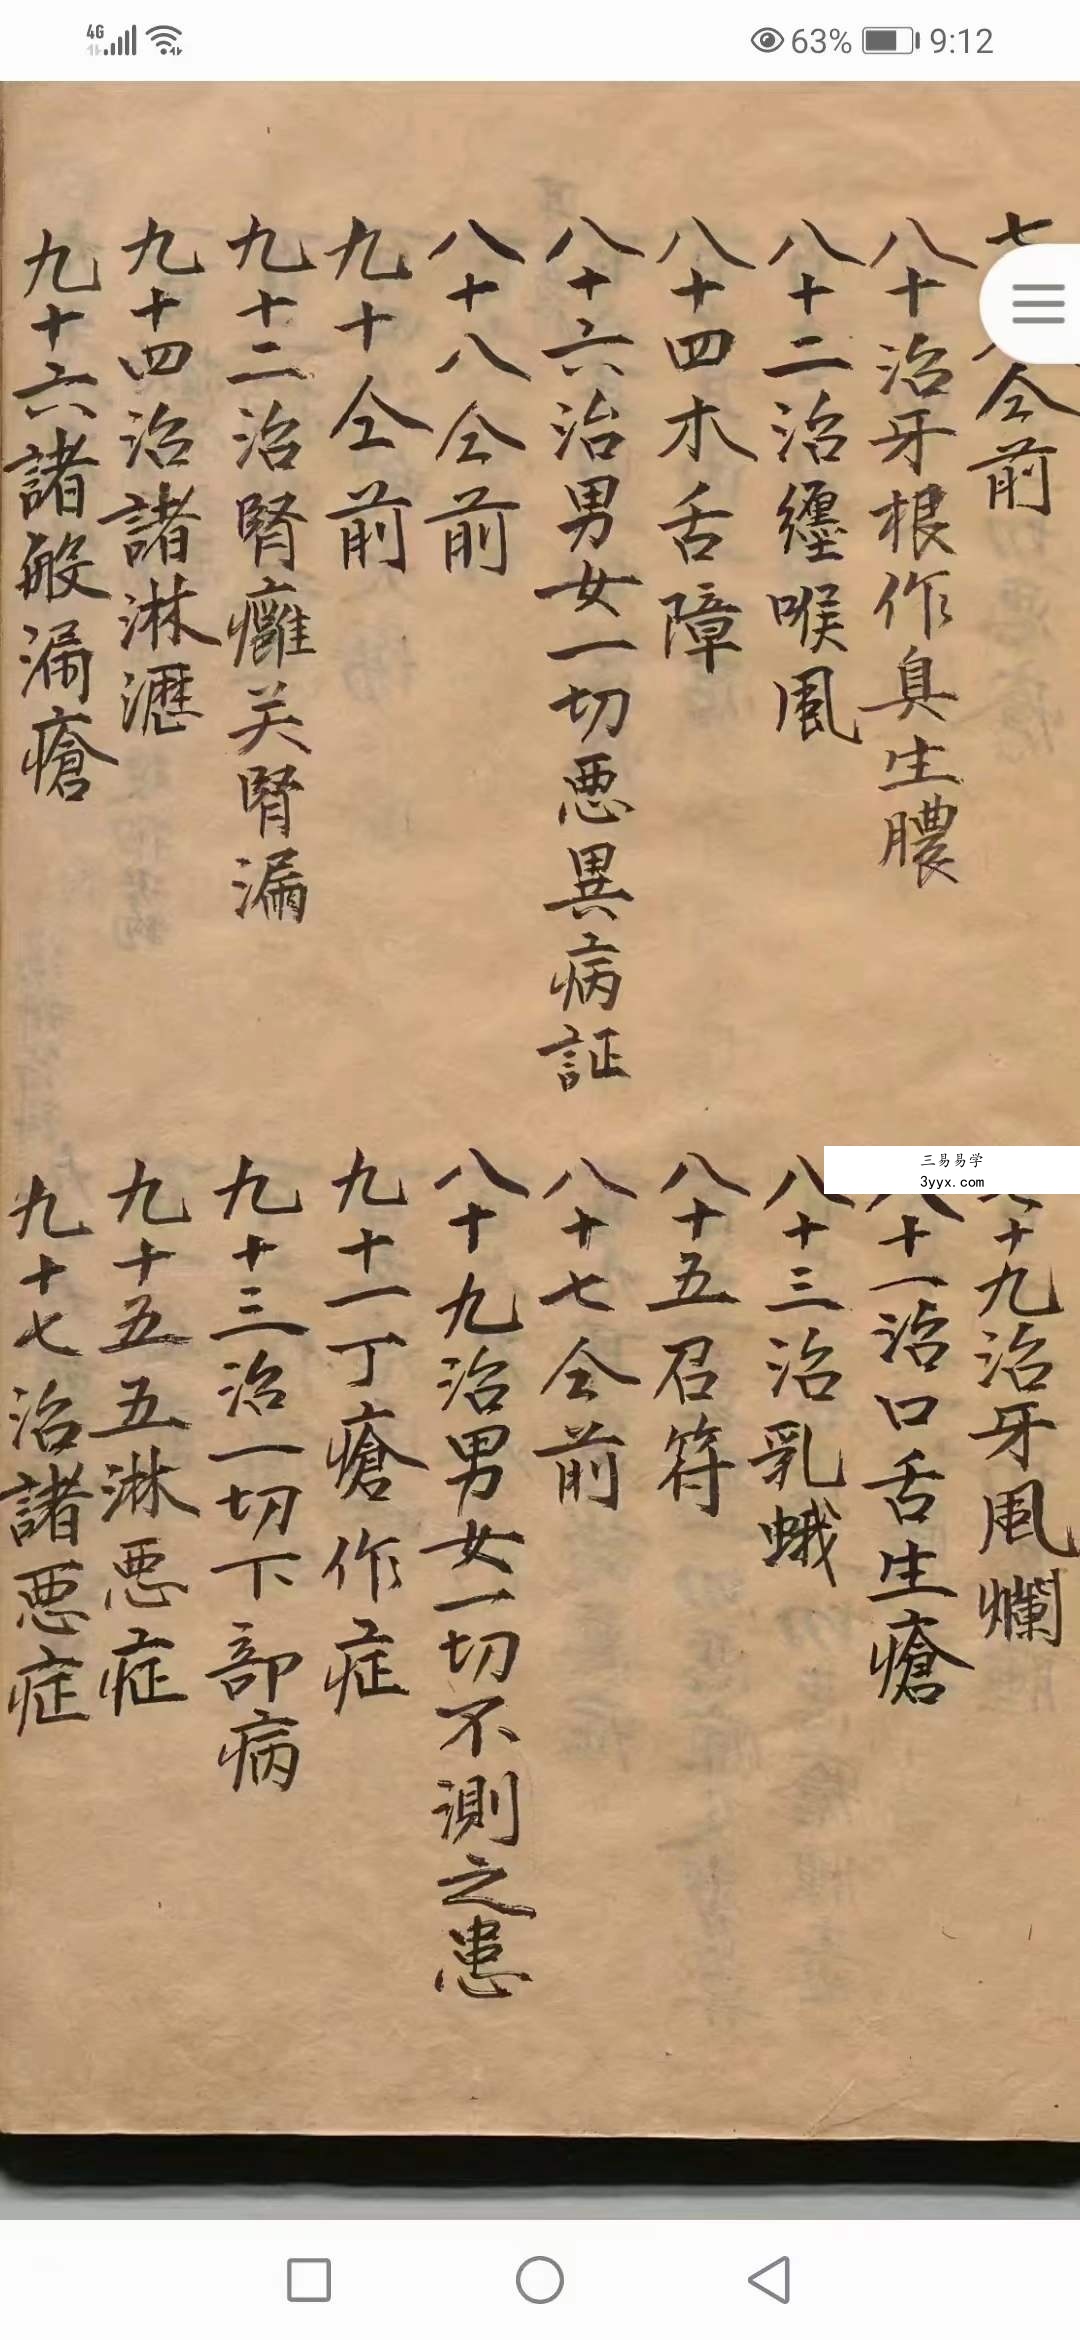 4G 63% 9:12
仝前
十九治牙風爛
八十治牙根作臭生膿
十一治口舌生瘡
八十二治纏喉風
八十三治乳蛾
八十四木舌障
八十五召符
八十六治男女一切惡異病証
八十七仝前
八十八仝前
八十九治男女一切不測之患
九十仝前
九十一丁瘡作症
九十二治腎癰关腎漏
九十三治一切下部病
九十四治諸淋瀝
九十五五淋惡症
九十六諸般漏瘡
九十七治諸惡症
三易易学
3yyx.com